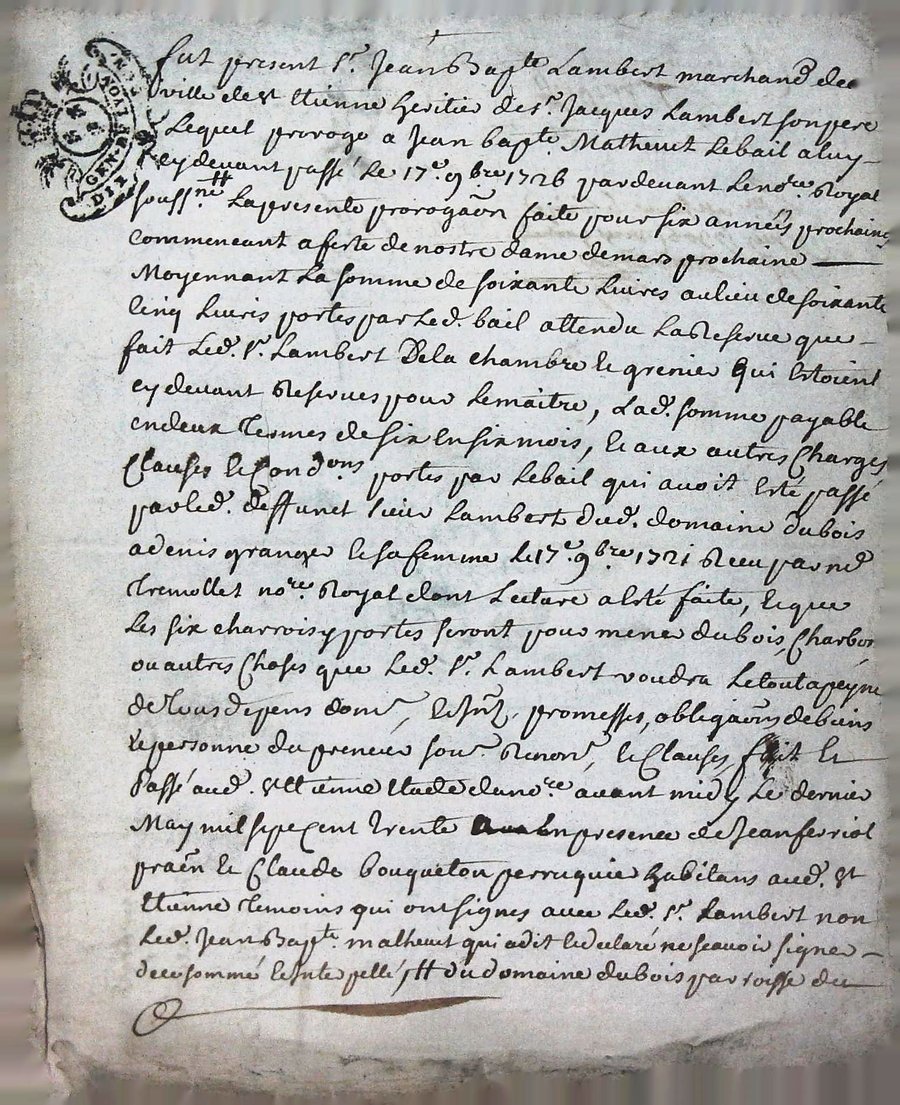 GEN. DE LYON
DIX
fut present Sr. Jean Bapte Lambert marchand de
ville de St Etienne heritier de Sr. Jacques Lambert son pere
Lequel proroge a Jean bapte. Matheuet Le bail a luy
cy devant passé Le 17e. 9bre 1726 pardevant Le nore. Royal
souss.né # La presente prorogaon faite pour six années prochaines
commencant a feste de nostre dame de mars prochaine
Moyennant La somme de soixante Livres au lieu de soixante
Cinq Livres portes par Led. bail attendu La Reserve que
fait Led. Sr. Lambert De la chambre et grenier qui Estoient
cy devant Reserves pour Le maitre, Lad. somme payable
en deux Termes de six En six mois, et aux autres Charges
Clauses et Condons portes par Le bail qui avoit Esté passé
par led. deffunct sieur Lambert dud. domaine dubois
a denis granger et sa femme le 17e. 9bre 1721 Receu par me
Tremollet nore Royal dont Lecture a Esté faite, et que
Les six charrois y portes seront pour mener du bois, Charbon
ou autres Choses que Led. Sr. Lambert voudra Le tout a peyne
de Tous depens dome, et Int, promesses, obligaons de biens
et personne du preneur soum Renon, et Clauses, fait Et
Passé aud. St Etienne Etude du nore avant midy Le dernier
May mil sept cent trente En presence de Jean ferriol
praen et Claude bouqueton perruquier habitans aud. St
Etienne Temoins qui ont signes avec Led. Sr. Lambert non
Led. Jean Bapt. matheuet qui a dit et declaré ne scavoir signer
de ce sommé et Intepellé, # du domaine dubois parroisse de